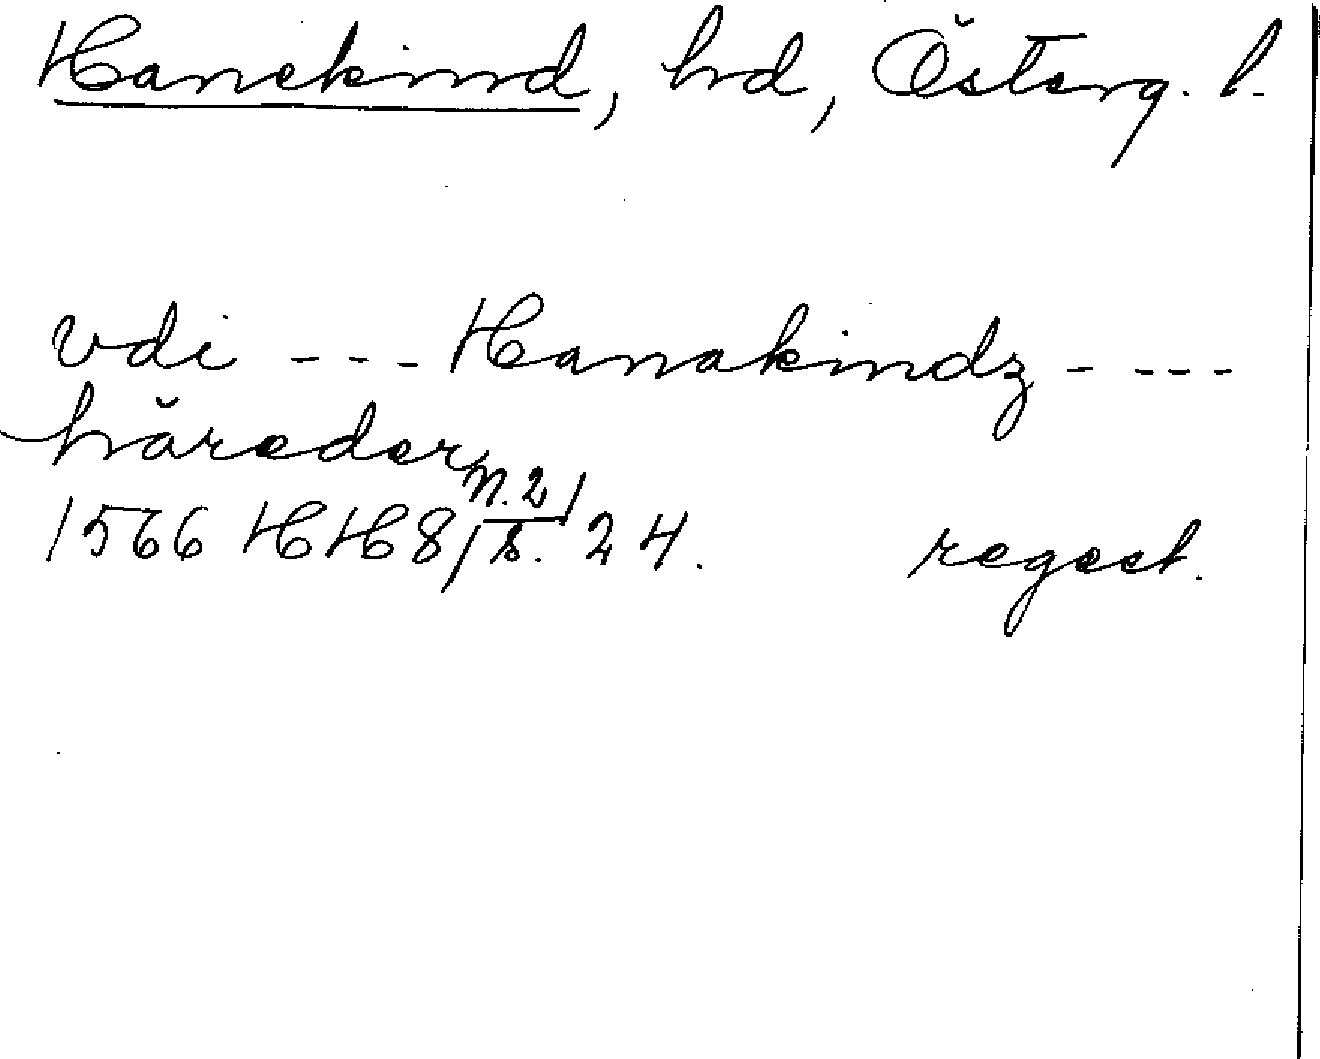 Hanekind, hd, Österg. l.
vdi --- Hanakindz - ---
häreder
1566 HH8/ n.2/s. 24. regest.